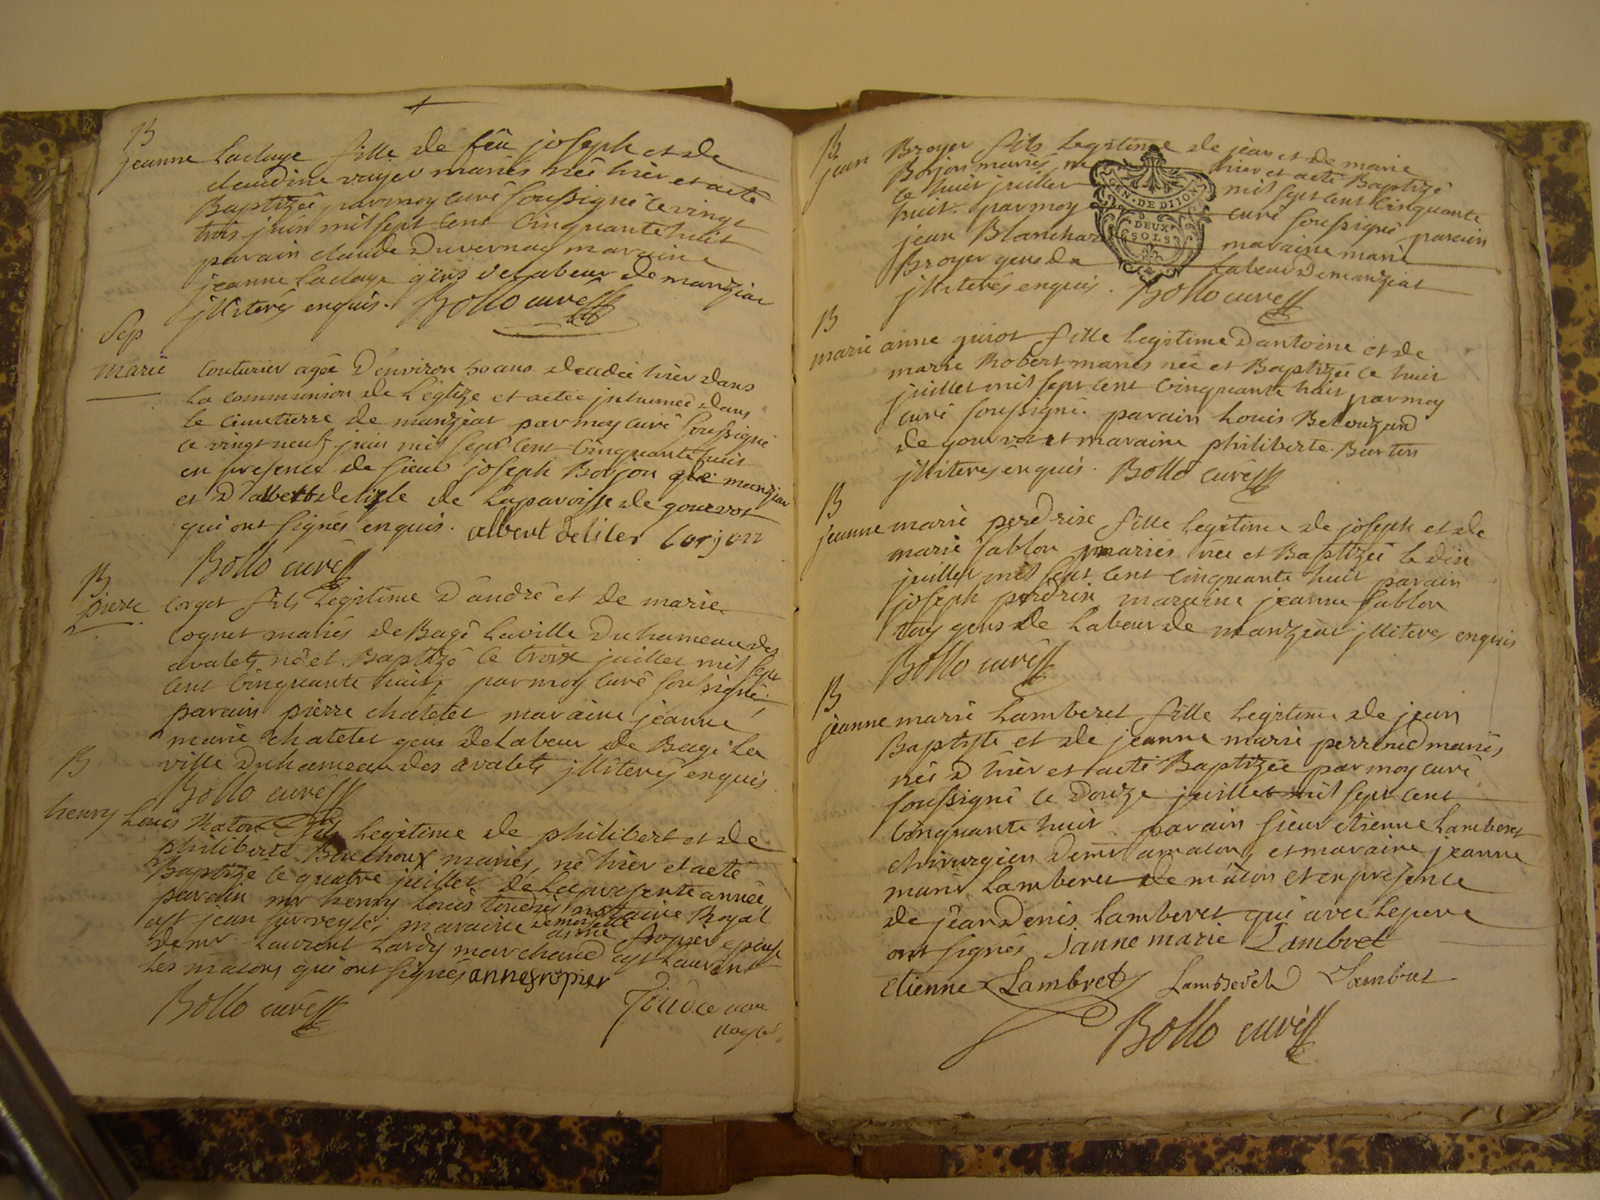 B
jeanne Laclaye fille de feu joseph et de
claudine vuyer mariés née hier et a eté
Baptizée par moy curé soussigné le vingt
trois juin mil sept cent Cinquante huit
parain claude Duvernay maraine
jeanne Laclaye gens de labeur de manziat
jlliterés enquis. Bollo curé
Sep
marie couturier agée D'environ ans decedée hier dans
la communion de L'eglize et a etée jnhumée dans
le cimetierre de manziat par moy curé soussigné
ce vingt neuf juin mil sept cent Cinquante huit
en presence de sieur joseph Borjon de manziat
et D'albert delisle de La paroisse de gourvot
qui ont signés enquis. albert deliles borjon
Bollo curé
B
pierre corget fils Legitime D'andré et de marie
cognet mariés de Bagé Laville Du hameau des
avalets né et Baptizé le trois juillet mil sept
cent Cinquante huit, par moy curé soussigné
parain pierre chatelet maraine jeanne
marie chatelet gens de Labeur de Bagé La
ville Du hameau des avalets jlliterés enquis
B
Bollo curé
henry Louis Naton fils Legitime de philibert et de
philiberte Bauchoux mariés, né hier et a eté
Baptizé le quatre juillet de La presente année
parain mr henry Louis notaire Royal
est jean sur reyle, maraine demoiselle anne fropier epouse
de mr Laurent Lardy marchand est Laurent
les macons qui ont signés anne fropier
Bollo curé
B
jean Broyer fils Legitime de jean et de marie
Borjon mariés né hier et a eté Baptizé
le huit juillet mil sept cent Cinquante
huit par moy curé soussigné parain
jean Blanchard maraine marie
Broyer gens de labeur De manziat
jlliterés enquis. Bollo curé
GEN. DE DIJON
DEUX
SOLS
B
marie anne guiot fille legitime D'antoine et de
marie Robert mariés née et Baptizée le huit
juillet mil sept cent Cinquante huit par moy
curé soussigné. parain Louis Belouzard
de gourvot et maraine philiberte Burtin
jlliterés enquis. Bollo curé
B
jeanne marie perdrix fille legitime de joseph et de
marie sablon mariés née et Baptizée le dix
juillet mil sept cent Cinquante huit parain
joseph perdrix maraine jeanne sablon
tous gens de Labeur de manziat jlliterés enquis
Bollo curé
B
jeanne marie Lamberet fille Legitime de jean
Baptiste et de jeanne marie perroud mariés
née d'hier et a eté Baptizée par moy curé
soussigné le Douze juillet mil sept cent
Cinquante huit parain sieur etienne Lamberet
chirurgien Demt a macon, et maraine jeanne
marie Lamberet de macon et en presence
de jean Denis Lamberet qui avec Le pere
ont signés janne marie Lambret
etienne Lambret Lamberet Lambret
Bollo curé